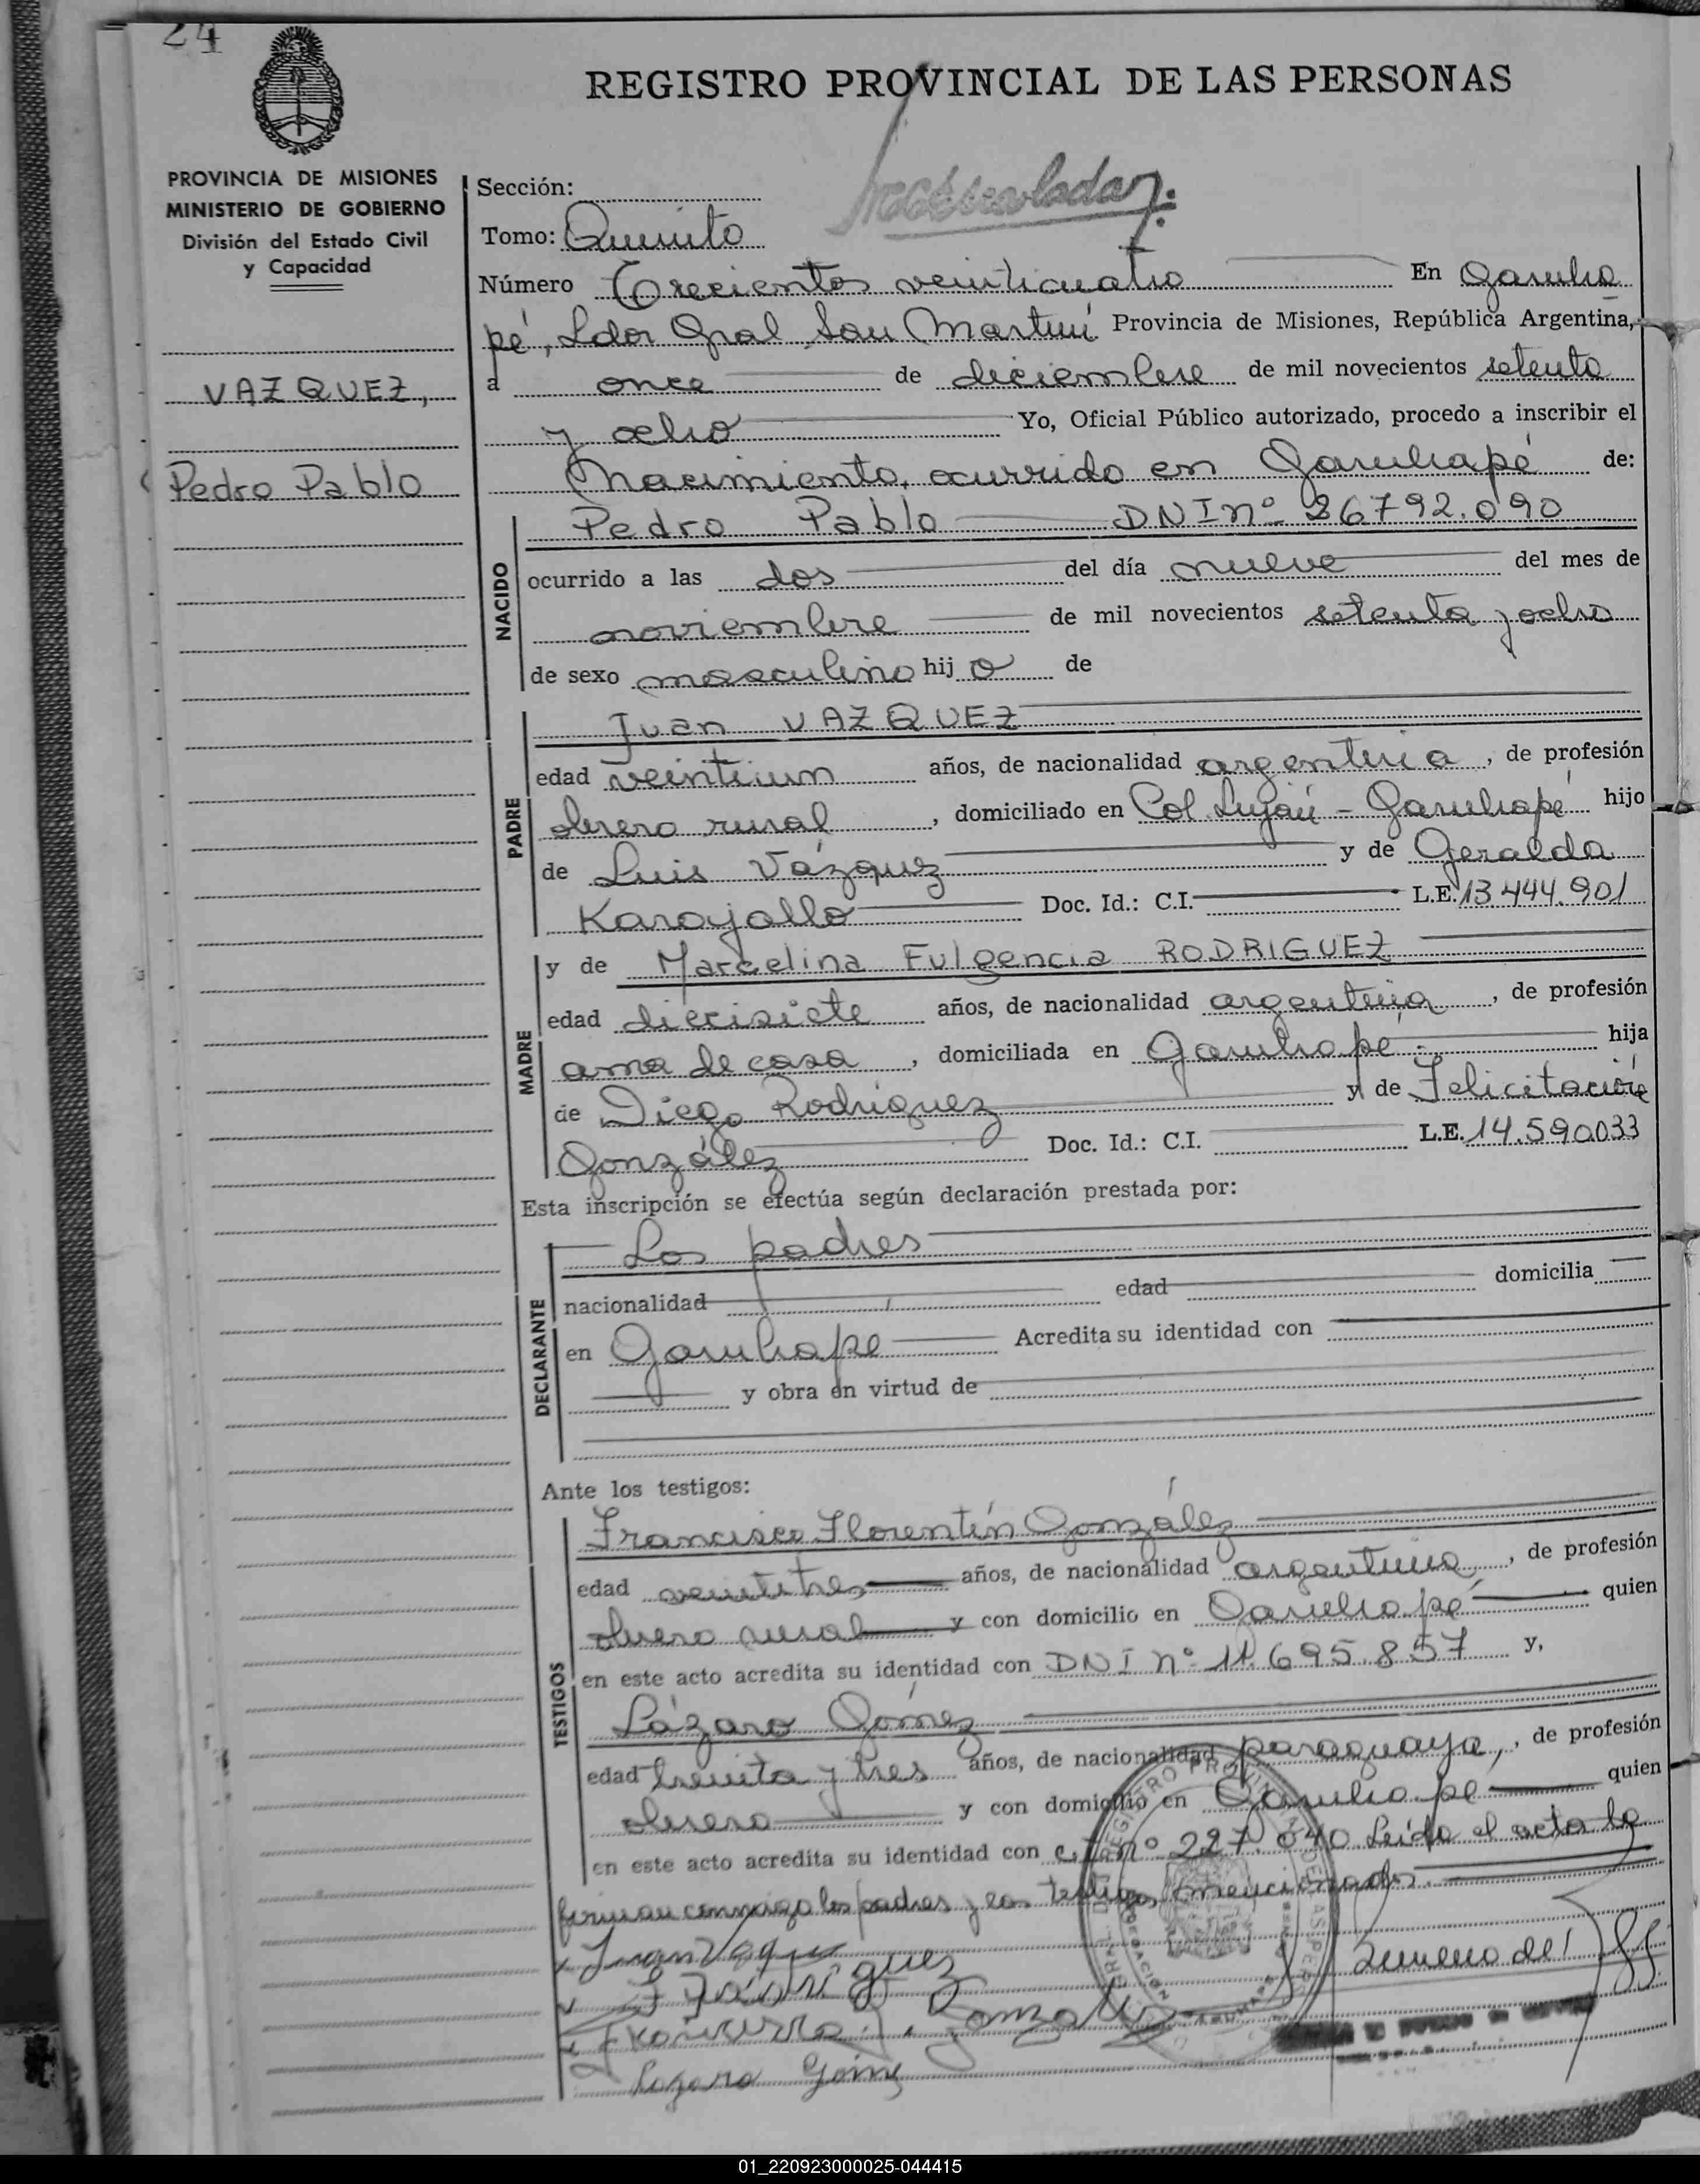 24
REGISTRO PROVINCIAL DE LAS PERSONAS
PROVINCIA DE MISIONES
MINISTERIO DE GOBIERNO
División del Estado Civil
y Capacidad
VAZQUEZ,
Pedro Pablo
Sección:
Tomo: Quinto
Número Trecientos veinticuatro En Garuha
pé, Ldor Gral San Martín Provincia de Misiones, República Argentina,
a once de diciembre de mil novecientos setenta
y ocho Yo, Oficial Público autorizado, procedo a inscribir el
Nacimiento ocurrido en Garuhapé de:
NACIDO
Pedro Pablo DNI nº 26792.090
ocurrido a las dos del día nueve del mes de
noviembre de mil novecientos setenta y ocho
de sexo masculino hijo de
PADRE
Juan VAZQUEZ
edad veintiun años, de nacionalidad argentina, de profesión
obrero rural, domiciliado en Col Luján - Garuhapé hijo
de Luis Vázquez y de Geralda
Karajallo Doc. Id.: C.I. L.E. 13.444.901
MADRE
y de Marcelina Fulgencia RODRIGUEZ
edad diecisiete años, de nacionalidad argentina, de profesión
ama de casa, domiciliada en Garuhapé hija
de Diego Rodríguez y de Felicitación
González Doc. Id.: C.I. L.E. 14.590.033
Esta inscripción se efectúa según declaración prestada por:
DECLARANTE
Los padres
nacionalidad edad domicilia
en Garuhapé Acredita su identidad con
y obra en virtud de
Ante los testigos:
TESTIGOS
Francisco Florentín González
edad veintitres años, de nacionalidad argentina, de profesión
obrero rural y con domicilio en Garuhapé quien
en este acto acredita su identidad con DNI nº 11.695.857 y,
Lázaro Gómez
edad treinta y tres años, de nacionalidad paraguaya, de profesión
obrero y con domicilio en Garuhapé quien
en este acto acredita su identidad con C.I nº 227.040 Leída el acta la
firman conmigo los padres y los testigos mencionados.
Juan Vazquez
Rodriguez
Gonzalez
Lazaro Gomez
01_220923000025-044415